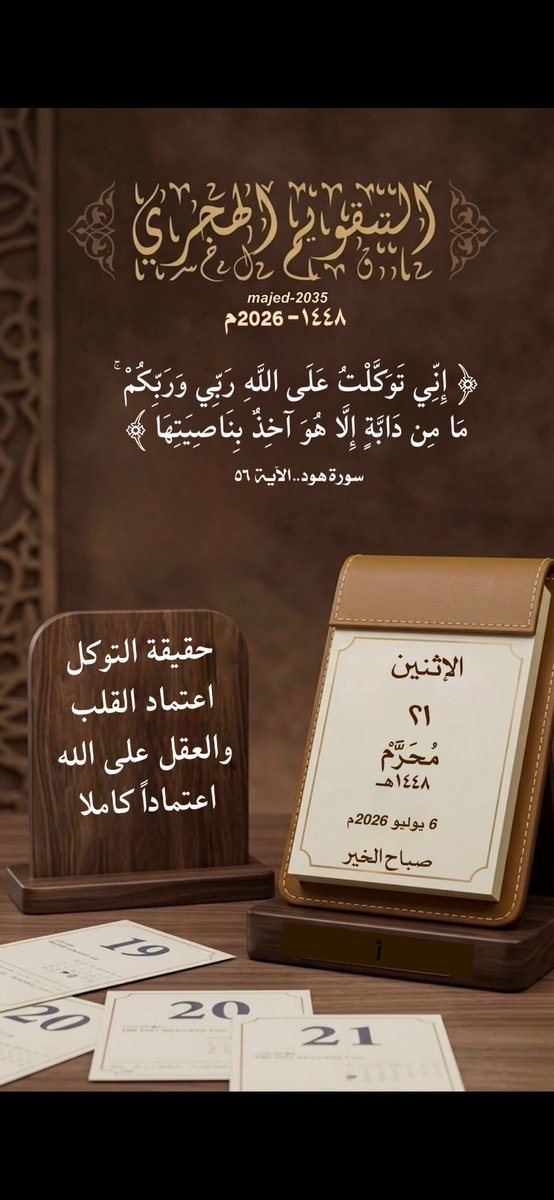 التقويم الهجري
majed-2035
١٤٤٨-2026م
﴿ إِنِّي تَوَكَّلْتُ عَلَى اللَّهِ رَبِّي وَرَبِّكُمْ ۚ
مَا مِن دَابَّةٍ إِلَّا هُوَ آخِذٌ بِنَاصِيَتِهَا ﴾
سورة هود..الآية ٥٦
حقيقة التوكل
اعتماد القلب
والعقل على الله
اعتماداً كاملا
الإثنين
٢١
مُحَرَّمْ
١٤٤٨هـ
6 يوليو 2026م
صباح الخير
أ
19
20
20
21